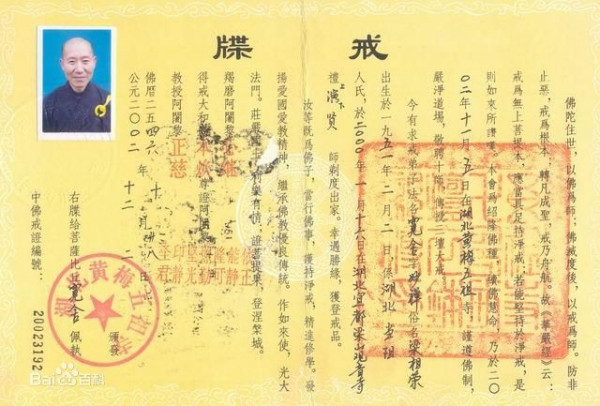 戒牒
佛陀住世，以佛爲師；佛滅度後，以戒爲師。防非
止惡，戒爲根本；轉凡成聖，戒乃舟航。故《華嚴經》云：
戒爲無上菩提本，應當具足持淨戒，若能堅持於淨戒，是
則如來所讚嘆。本會爲紹隆佛種，續佛慧命，乃於二〇
〇二年十一月五日在湖北黃梅五祖寺，謹遵佛制，
嚴淨道場，敬聘十師，傳授三壇大戒。
今有求戒弟子法名寬舍 祥，俗名梁相荣
出生於一九五一年二月二日係湖北
人氏，於二000年一月十六日在湖北宜都梁山观音寺
禮上演下贤師剃度出家。幸遇勝緣，獲登戒品。
汝等既爲佛子，當行佛事，護持淨戒，精進修學。發
揚愛國愛教精神，繼承佛教優良傳統。作如來使，光大
法門。莊嚴國土，利樂有情，證菩提果，登涅槃城。
得戒大和尚 尊證阿闍黎
羯磨阿闍黎
教授阿闍黎正慈
佛曆二五四六年十月廿八日
公元二00二年十二月二日
右牒給菩薩比丘寬舍佩執
頒發
湖北黃梅五祖寺
中佛戒證編號：20023192
Bai百科